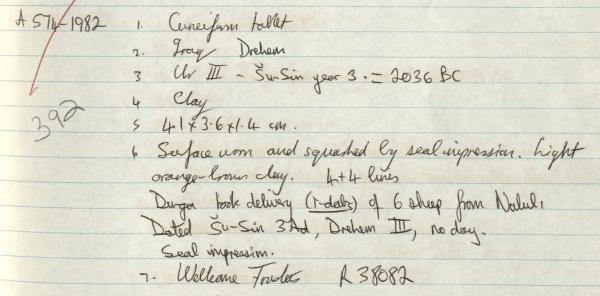 A 574-1982 1. Cuneiform tablet
2. Iraq Drehem
3 Ur III - Šu-Sin year 3 . = 2036 BC
392
4 Clay
5 4.1 x 3.6 x 1.4 cm.
6 Surface worn and squashed by seal impression. Light
orange-brown clay. 4+4 lines
Duga took delivery (ì-dab5) of 6 sheep from Nalul,
Dated Šu-Sin 3 Ad, Drehem III, no day.
Seal impression.
7. Wellcome Trustees R 38082